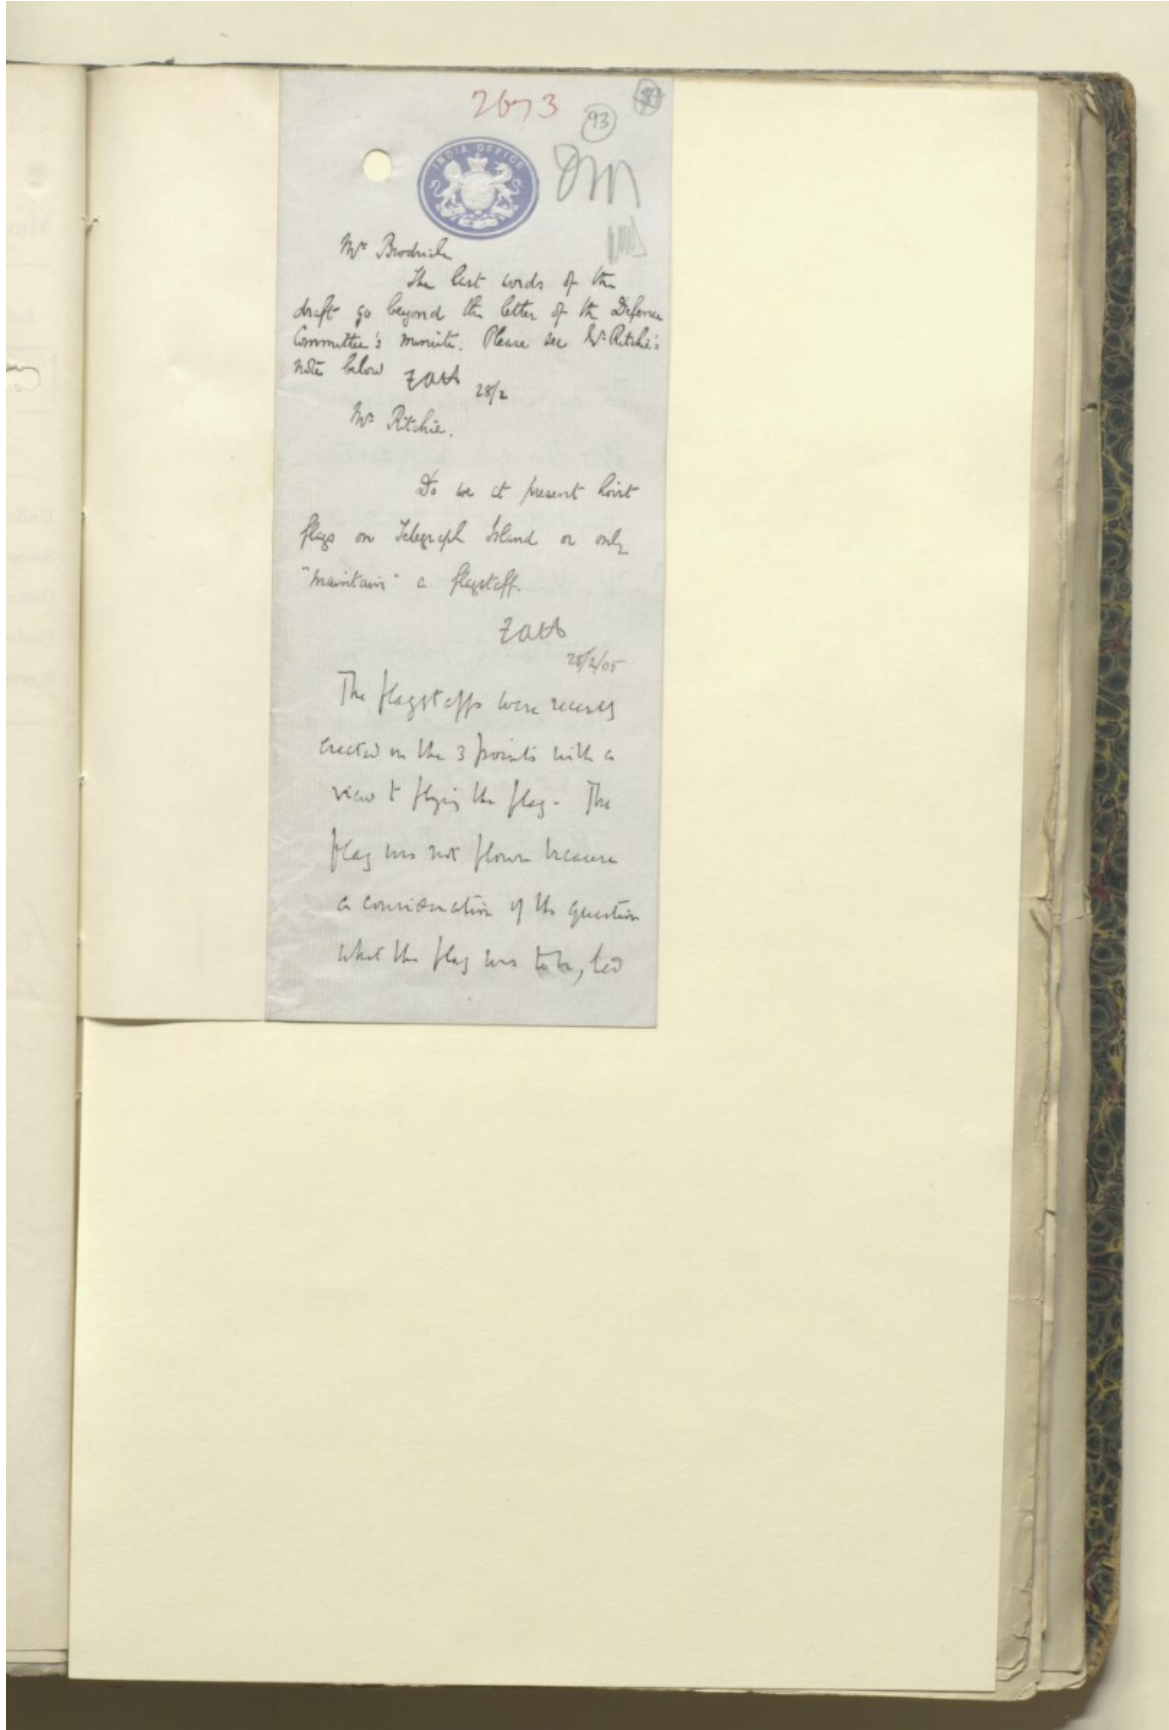 2673
93
INDIA OFFICE
Mr Brodrick
The last words of the
draft go beyond the letter of the Defence
Committee's minute. Please see Mr Ritchie's
note below
28/2
Mr Ritchie.
Do we at present hoist
flags on Telegraph Island or only
"maintain" a flagstaff.
28/2/05
The flagstaffs were recently
erected on the 3 points with a
view to flying the flag - The
flag was not flown because
a consideration of the question
what the flag was to be, led